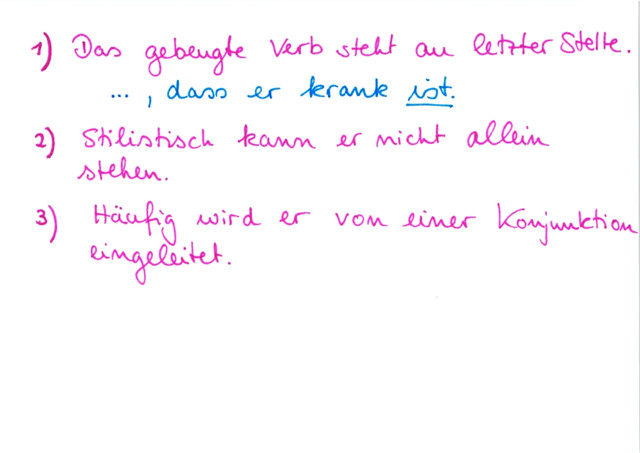 1) Das gebeugte Verb steht an letzter Stelle.
..., dass er krank ist.
2) Stilistisch kann er nicht allein
stehen.
3) Häufig wird er von einer Konjunktion
eingeleitet.